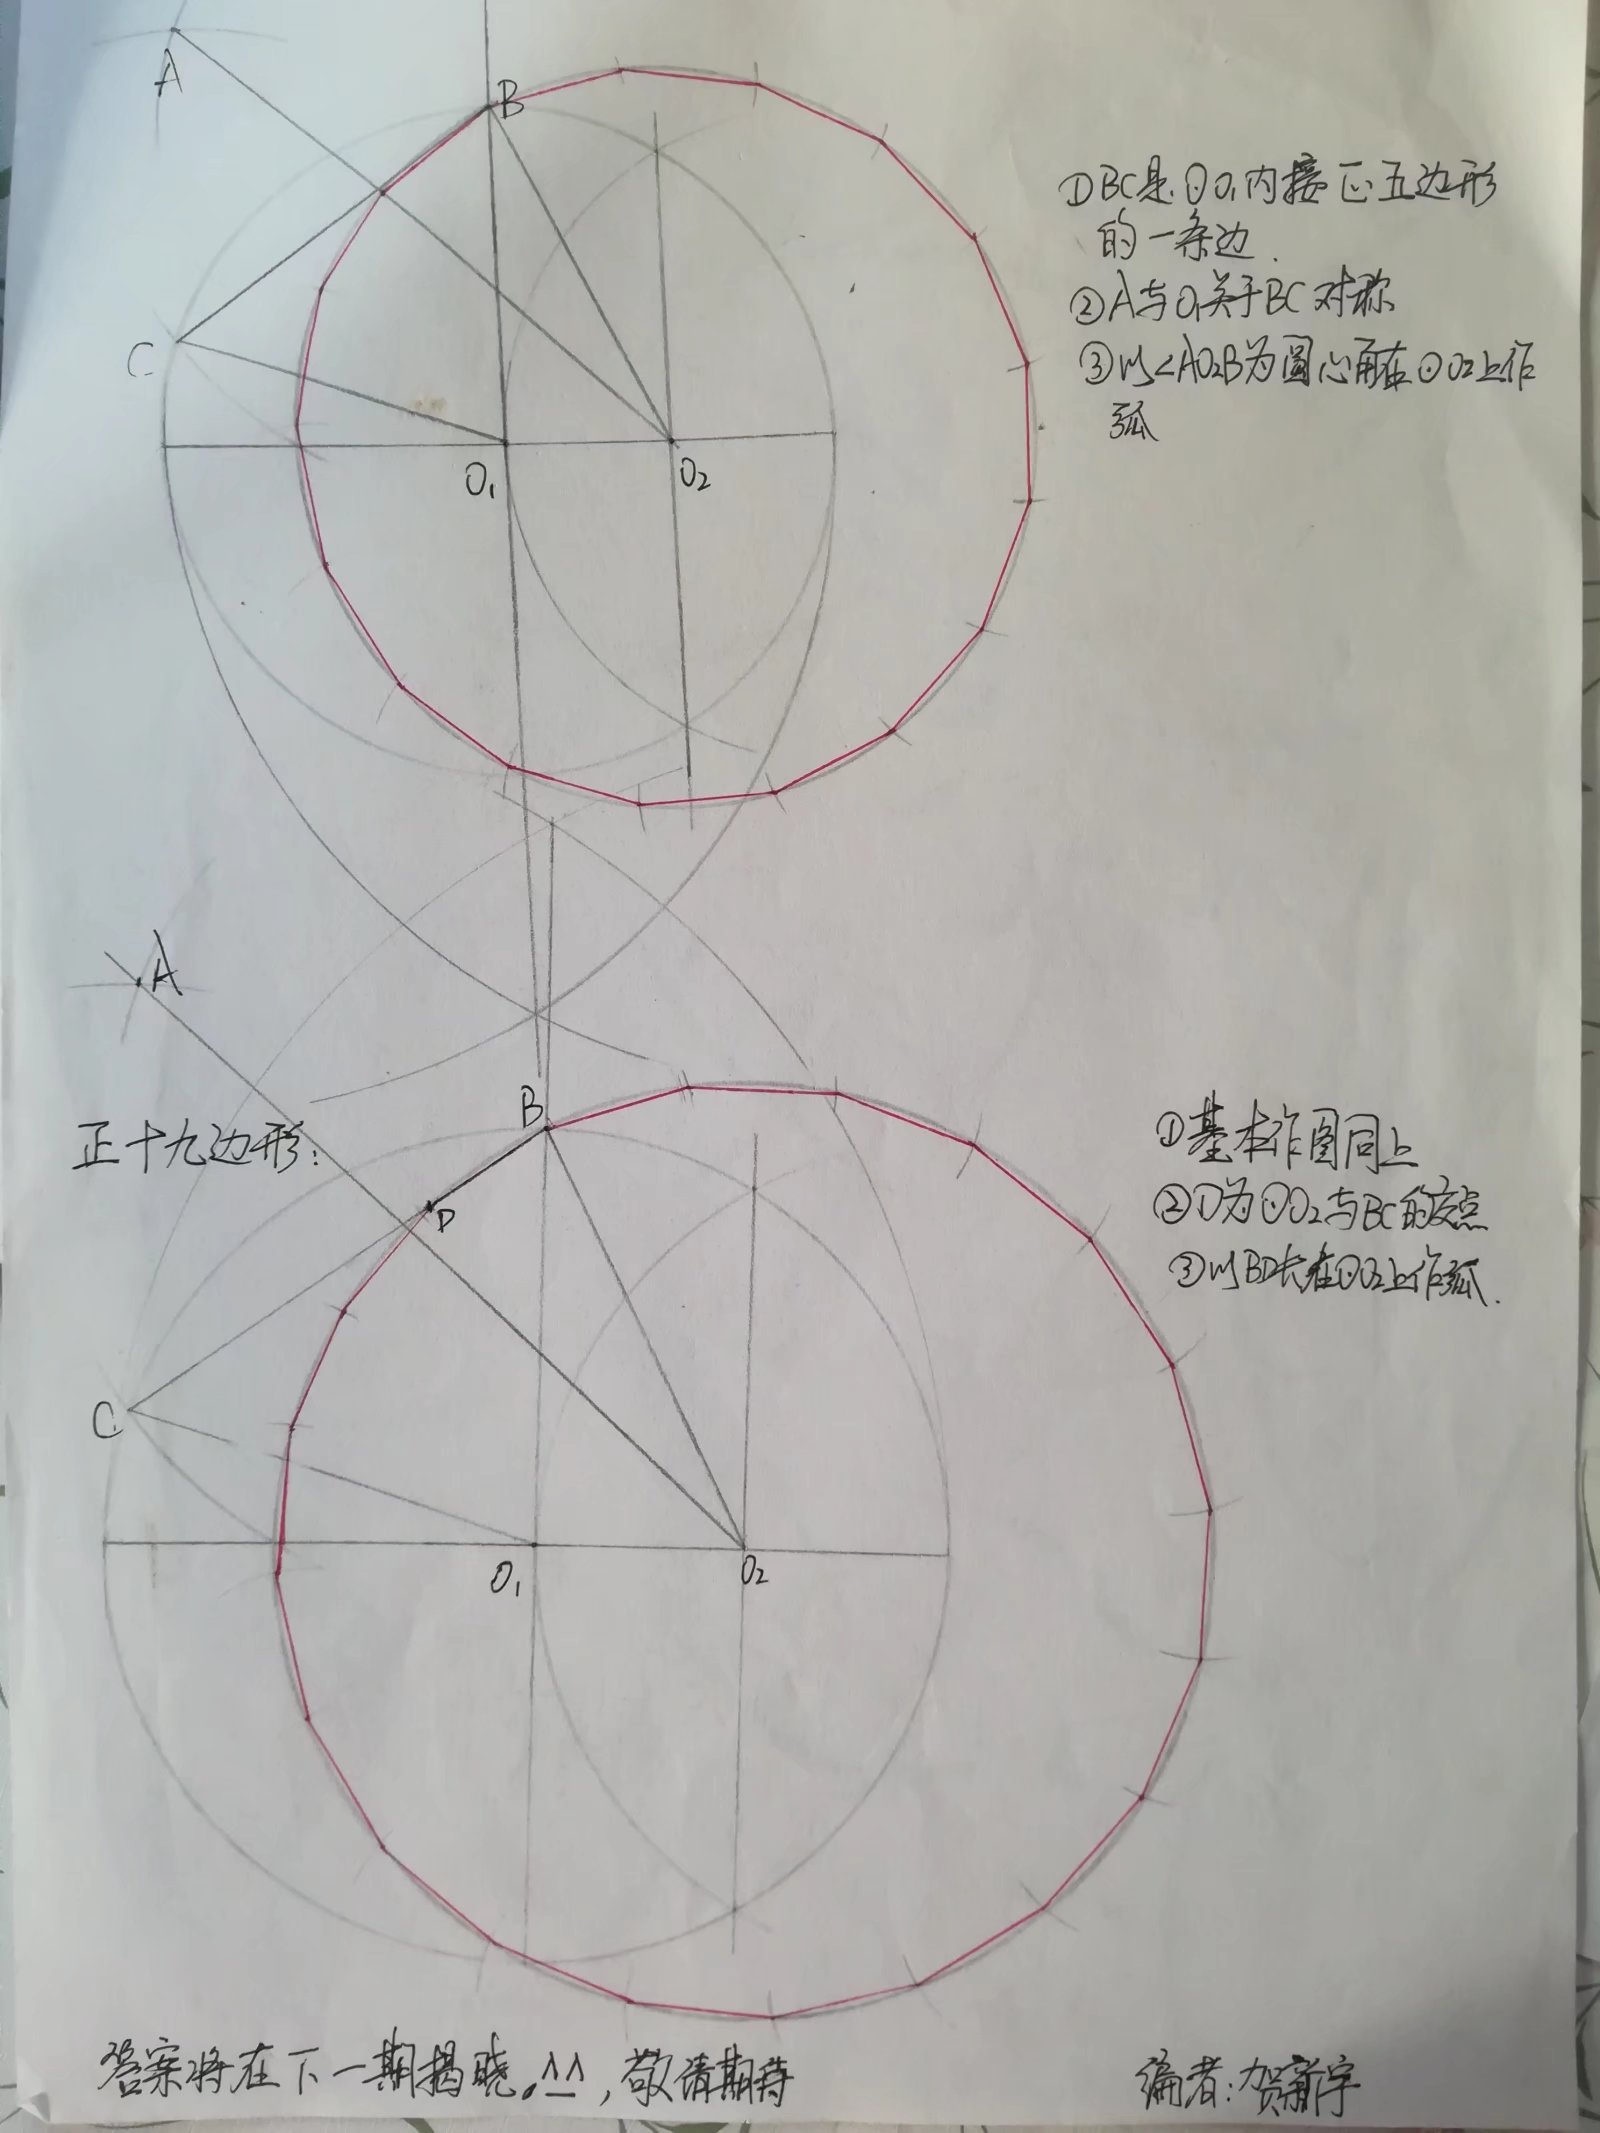 A
B
①BC是⊙O₁内接正五边形
的一条边.
②A与O₁关于BC对称
③以∠AO₂B为圆心角在⊙O₂上作
弧
C
O₁
O₂
A
B
正十九边形:
①基本作图同上
②D为⊙O₂与BC的交点
③以BD长在⊙O₂上作弧.
D
C
O₁
O₂
答案将在下一期揭晓。^_^,敬请期待
编者:贺新宇